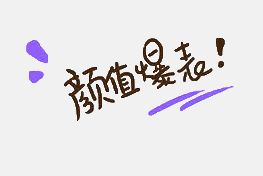 颜值爆表!